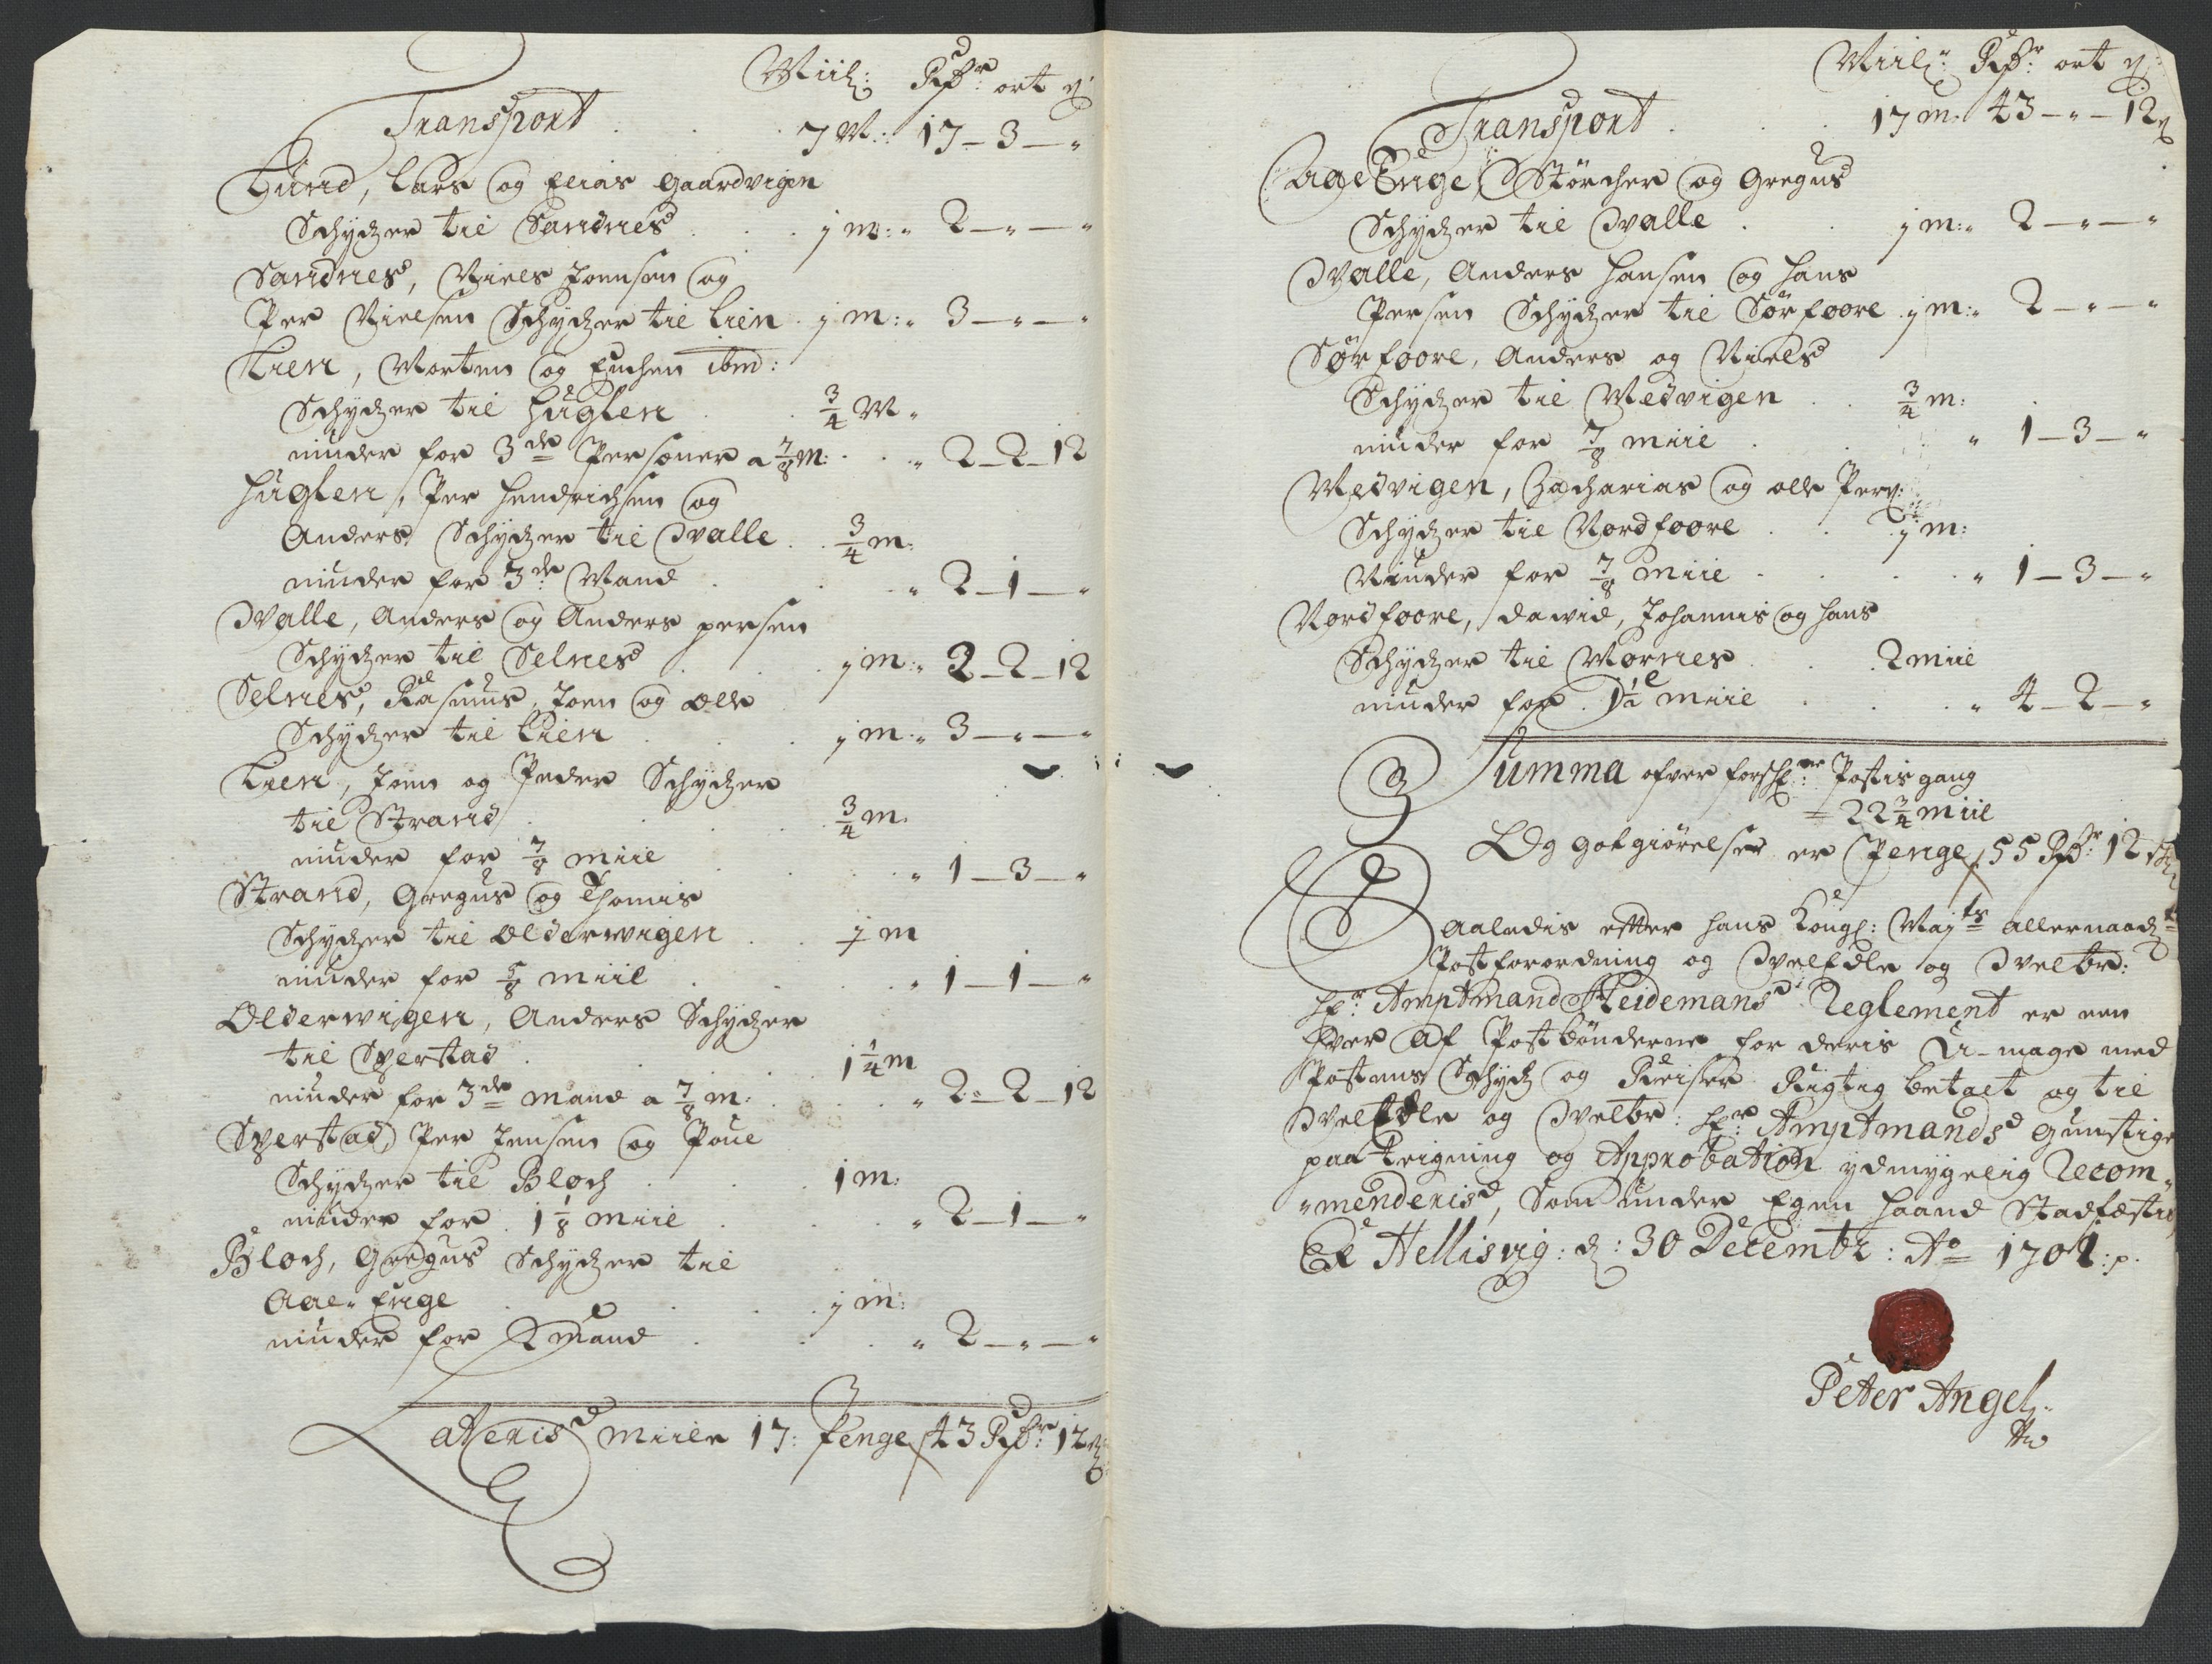 Miil: Rdr: ort ß
Transport . . . 7 M: 17 – 3 – "
Lund, Lars og Elias Gaardvigen
Schydzer til Sandnes . . 1 m: " 2 – " – "
Sandnes, Niels Joensen og
Per Nielsen Schydzer til Lien . 1 m: " 3 – " – "
Lien, Morten og Enchen ibm:
Schydzer til Huglen . . 3/4 M "
niuder for 3de Personer a 7/8 m: . . " 2 – 2 – 12
Huglen, Per Hendrichsen og
Anders Schydzer til Valle . . 3/4 m:
niuder for 3de Mand . . . " 2 – 1 – "
Valle, Anders og Anders persen
Schydzer til Selnes . . 1 m: " 2 – 2 – 12
Selnes, Rasmus, Joen og Olle
Schydzer til Lien . . . 1 m: " 3 – " – "
Lien, Joen og Peder Schydzer
til Strand . . . 3/4 m.
niuder for 7/8 miil . . . " 1 – 3 – "
Strand, Gregus og Thomis
Schydzer til Oldervigen . . 1 m
niuder for 5/8 miil . . . " 1 – 1 – "
Oldervigen, Anders Schydzer
til Sperstad . . . 1 1/4 m
niuder for 3de mand a 7/8 m: . . " 2 – 2 – 12
Sperstad, Per Jensen og Poul
Schydzer til Bloch . . . 1 m:
niuder for 1 1/8 miil . . . " 2 – 1 – "
Bloch, Gregus Schydzer til
Aal Enge . . . 1 m:
niuder for 2 mand . . . " 2 – " – "
Lateris miile 17: Penge 43 Rdr: 12 ß
Miil: Rdr: ort ß
Transport . . . 17 m: 43 – " – 12 ß
Aal Enge, Störcher og Gregus
Schydzer til Valle . . 1 m: " 2 – " – "
Valle, Anders Hansen og Hans
Persen Schydzer til Sörfoore . 1 m: " 2 – " – "
Sörfoore, Anders og Niels
Schydzer til Medvigen . . 3/4 m:
niuder for 7/8 miil . . . " 1 – 3 – "
Medvigen, Zacharias og Olle Pers:
Schydzer til Nordfoore . . 1 m:
Niuder for 7/8 miil . . . " 1 – 3 – "
Nordfoore, David, Johannis og Hans
Schydzer til Mornes . . 2 miil
niuder for 1 1/2 miil . . . " 4 – 2 – "
Summa ofver forschr:ne Postis gang
= 22 3/4 miil
Og gotgiörelser er Penge 55 Rdr: 12 ß
Saaledis efter Hans Kongl: Mayts allernaadste
Postforordning og VelEdle og Velbr:
Hr: Amptmand Heidemans Reglement er een
hver af Postbönderne for deris U-mage med
Postens Schydz og Reiser Rigtig betalt og til
VelEdle og Velbr: Hr: Amptmands Gunstige
paateigning og Approbation ydmygelig Recom-
"menderis, Som under Egen Haand Stadfæstis
Ex Hellisvig: d: 30 Decembr: Ao 1701:
Peter Angel: